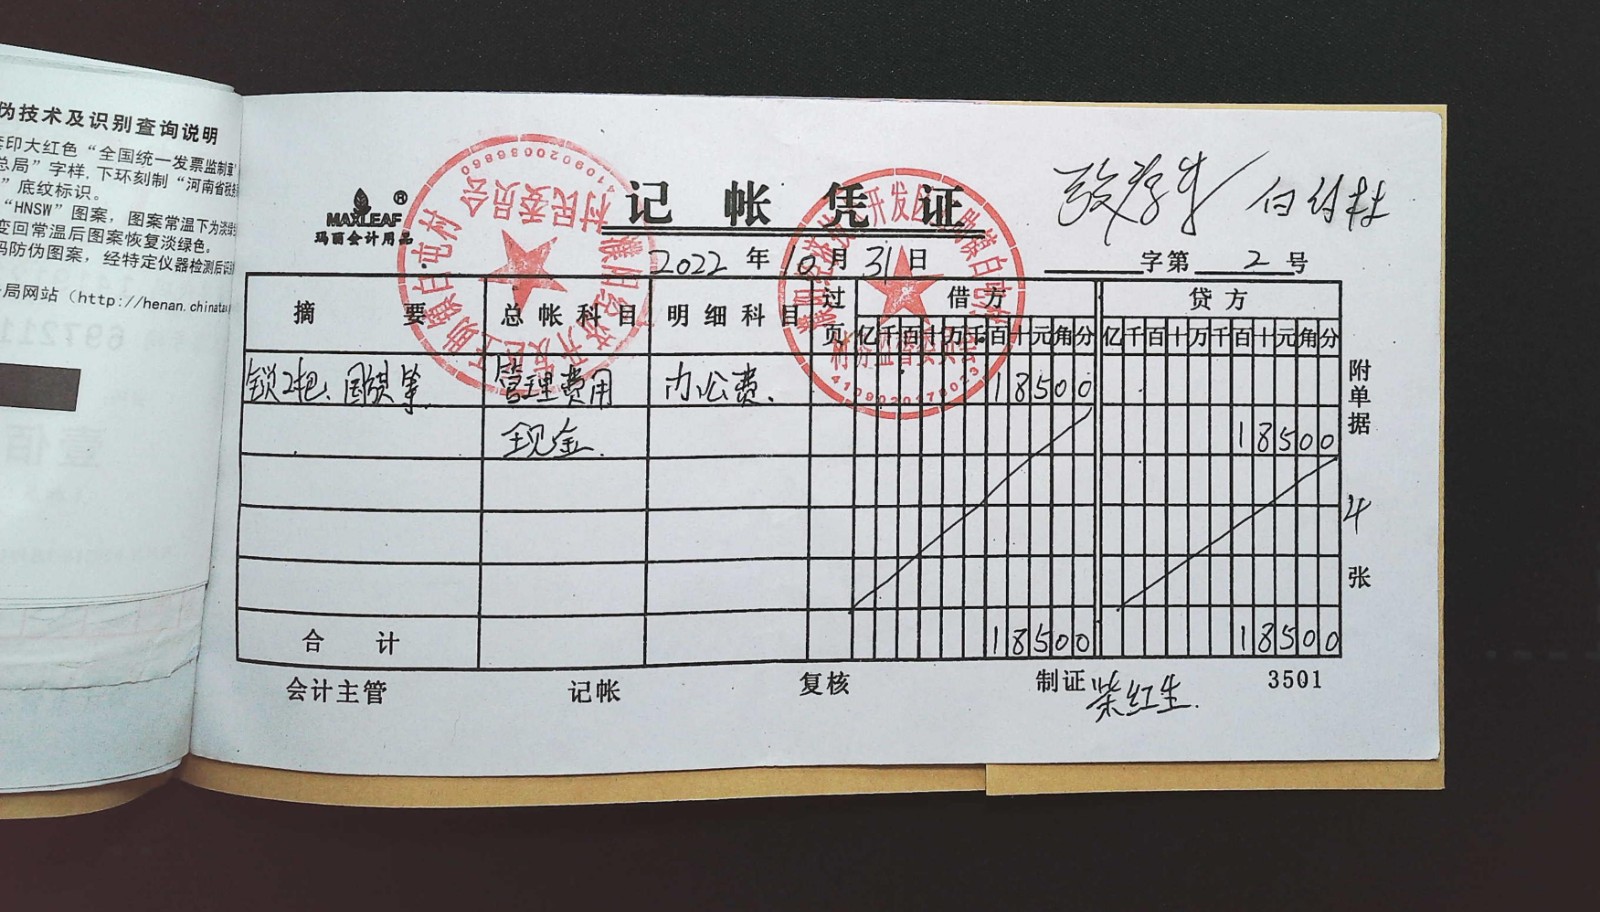 伪技术及识别查询说明
套印大红色“全国统一发票监制章
总局”字样,下环刻制“河南省税
”底纹标识。
“HNSW”图案，图案常温下为淡绿
变回常温后图案恢复淡绿色。
码防伪图案，经特定仪器检测后
局网站（http://henan.chinata
MAXLEAF®
玛丽会计用品
记帐凭证
白付林
2022年10月31日
字第2号
摘要 总帐科目 明细科目 过页 借方 贷方
亿千百十万千百十元角分 亿千百十万千百十元角分
锁2把、国旗等 管理费用 办公费. 18500
现金 18500
合计 18500 18500
附单据4张
会计主管 记帐 复核 制证 柴红生 3501
村民委员会
4109020036860
开发区
村务监督委员会
4109020179023